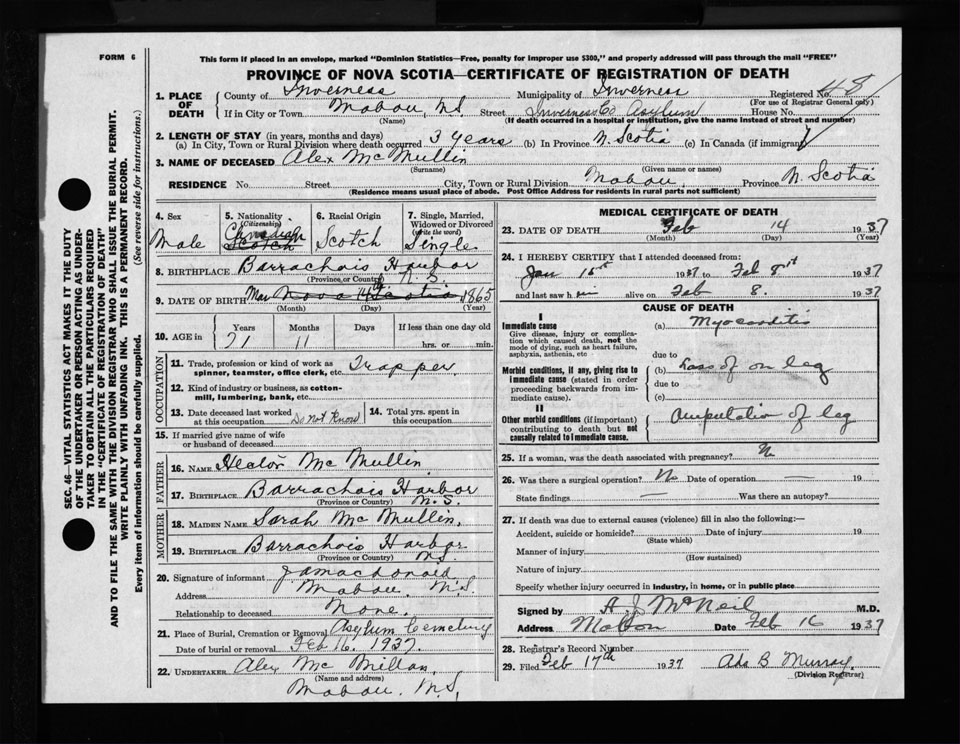 FORM 6
This form if placed in an envelope, marked "Dominion Statistics—Free, penalty for improper use $300," and properly addressed will pass through the mail "FREE"
PROVINCE OF NOVA SCOTIA—CERTIFICATE OF REGISTRATION OF DEATH
SEC. 46—VITAL STATISTICS ACT MAKES IT THE DUTY
OF THE UNDERTAKER OR PERSON ACTING AS UNDER-
TAKER TO OBTAIN ALL THE PARTICULARS REQUIRED
IN THE "CERTIFICATE OF REGISTRATION OF DEATH"
AND TO FILE THE SAME WITH THE DIVISION REGISTRAR WHO SHALL ISSUE THE BURIAL PERMIT.
WRITE PLAINLY WITH UNFADING INK. THIS IS A PERMANENT RECORD.
Every item of information should be carefully supplied. (See reverse side for instructions.)
1. PLACE OF DEATH County of Inverness Municipality of Inverness Registered No. 48
(For use of Registrar General only)
If in City or Town Mabou, N.S. Street Inverness Co Asylum House No.
(Name) (If death occurred in a hospital or institution, give the name instead of street and number)
2. LENGTH OF STAY (in years, months and days)
(a) In City, Town or Rural Division where death occurred 3 years (b) In Province N. Scotia (c) In Canada (if immigrant)
3. NAME OF DECEASED Alex McMullin
(Surname) (Given name or names)
RESIDENCE No. Street City, Town or Rural Division Mabou Province N. Scotia
(Residence means usual place of abode. Post Office Address for residents in rural parts not sufficient)
4. Sex Male
5. Nationality (Citizenship) Canadian Scotch
6. Racial Origin Scotch
7. Single, Married, Widowed or Divorced (write the word) Single
8. BIRTHPLACE Barrachois Harbor N.S.
(Province or Country)
9. DATE OF BIRTH Mar Nova Scotia 1865
(Month) (Day) (Year)
10. AGE in Years 71 Months 11 Days If less than one day old hrs. or min.
OCCUPATION
11. Trade, profession or kind of work as spinner, teamster, office clerk, etc. Trapper
12. Kind of industry or business, as cotton-mill, lumbering, bank, etc.
13. Date deceased last worked at this occupation Do not Know
14. Total yrs. spent in this occupation
15. If married give name of wife or husband of deceased
FATHER
16. NAME Hector McMullin
17. BIRTHPLACE Barrachois Harbor N.S.
(Province or Country)
MOTHER
18. MAIDEN NAME Sarah McMullin,
19. BIRTHPLACE Barrachois Harbor N.S
(Province or Country)
20. Signature of informant
Address Mabou, N.S.
Relationship to deceased None.
21. Place of Burial, Cremation or Removal Asylum Cemetery
Date of burial or removal Feb 16. 1937.
22. UNDERTAKER Alex McMillan,
(Name and address)
Mabou. N.S,
MEDICAL CERTIFICATE OF DEATH
23. DATE OF DEATH Feb 14 1937
(Month) (Day) (Year)
24. I HEREBY CERTIFY that I attended deceased from:
Jan 1937 to Feb 8 1937
and last saw him alive on Feb 8. 1937
CAUSE OF DEATH
I
Immediate cause
Give disease, injury or complication which caused death, not the mode of dying, such as heart failure, asphyxia, asthenia, etc
(a) Myocarditis
due to
Morbid conditions, if any, giving rise to immediate cause (stated in order proceeding backwards from immediate cause).
(b) Loss of on leg
due to
(c)
II
Other morbid conditions (if important) contributing to death but not causally related to immediate cause.
Amputation of leg
25. If a woman, was the death associated with pregnancy? N
26. Was there a surgical operation? No Date of operation — 19
State findings — Was there an autopsy?
27. If death was due to external causes (violence) fill in also the following:—
Accident, suicide or homicide? Date of injury 19
(State which)
Manner of injury
(How sustained)
Nature of injury
Specify whether injury occurred in industry, in home, or in public place
Signed by A J McNeil M.D.
Address Date Feb 16 1937
28. Registrar's Record Number
29. Filed Feb 17th 1937 Ada B Murray
(Division Registrar)